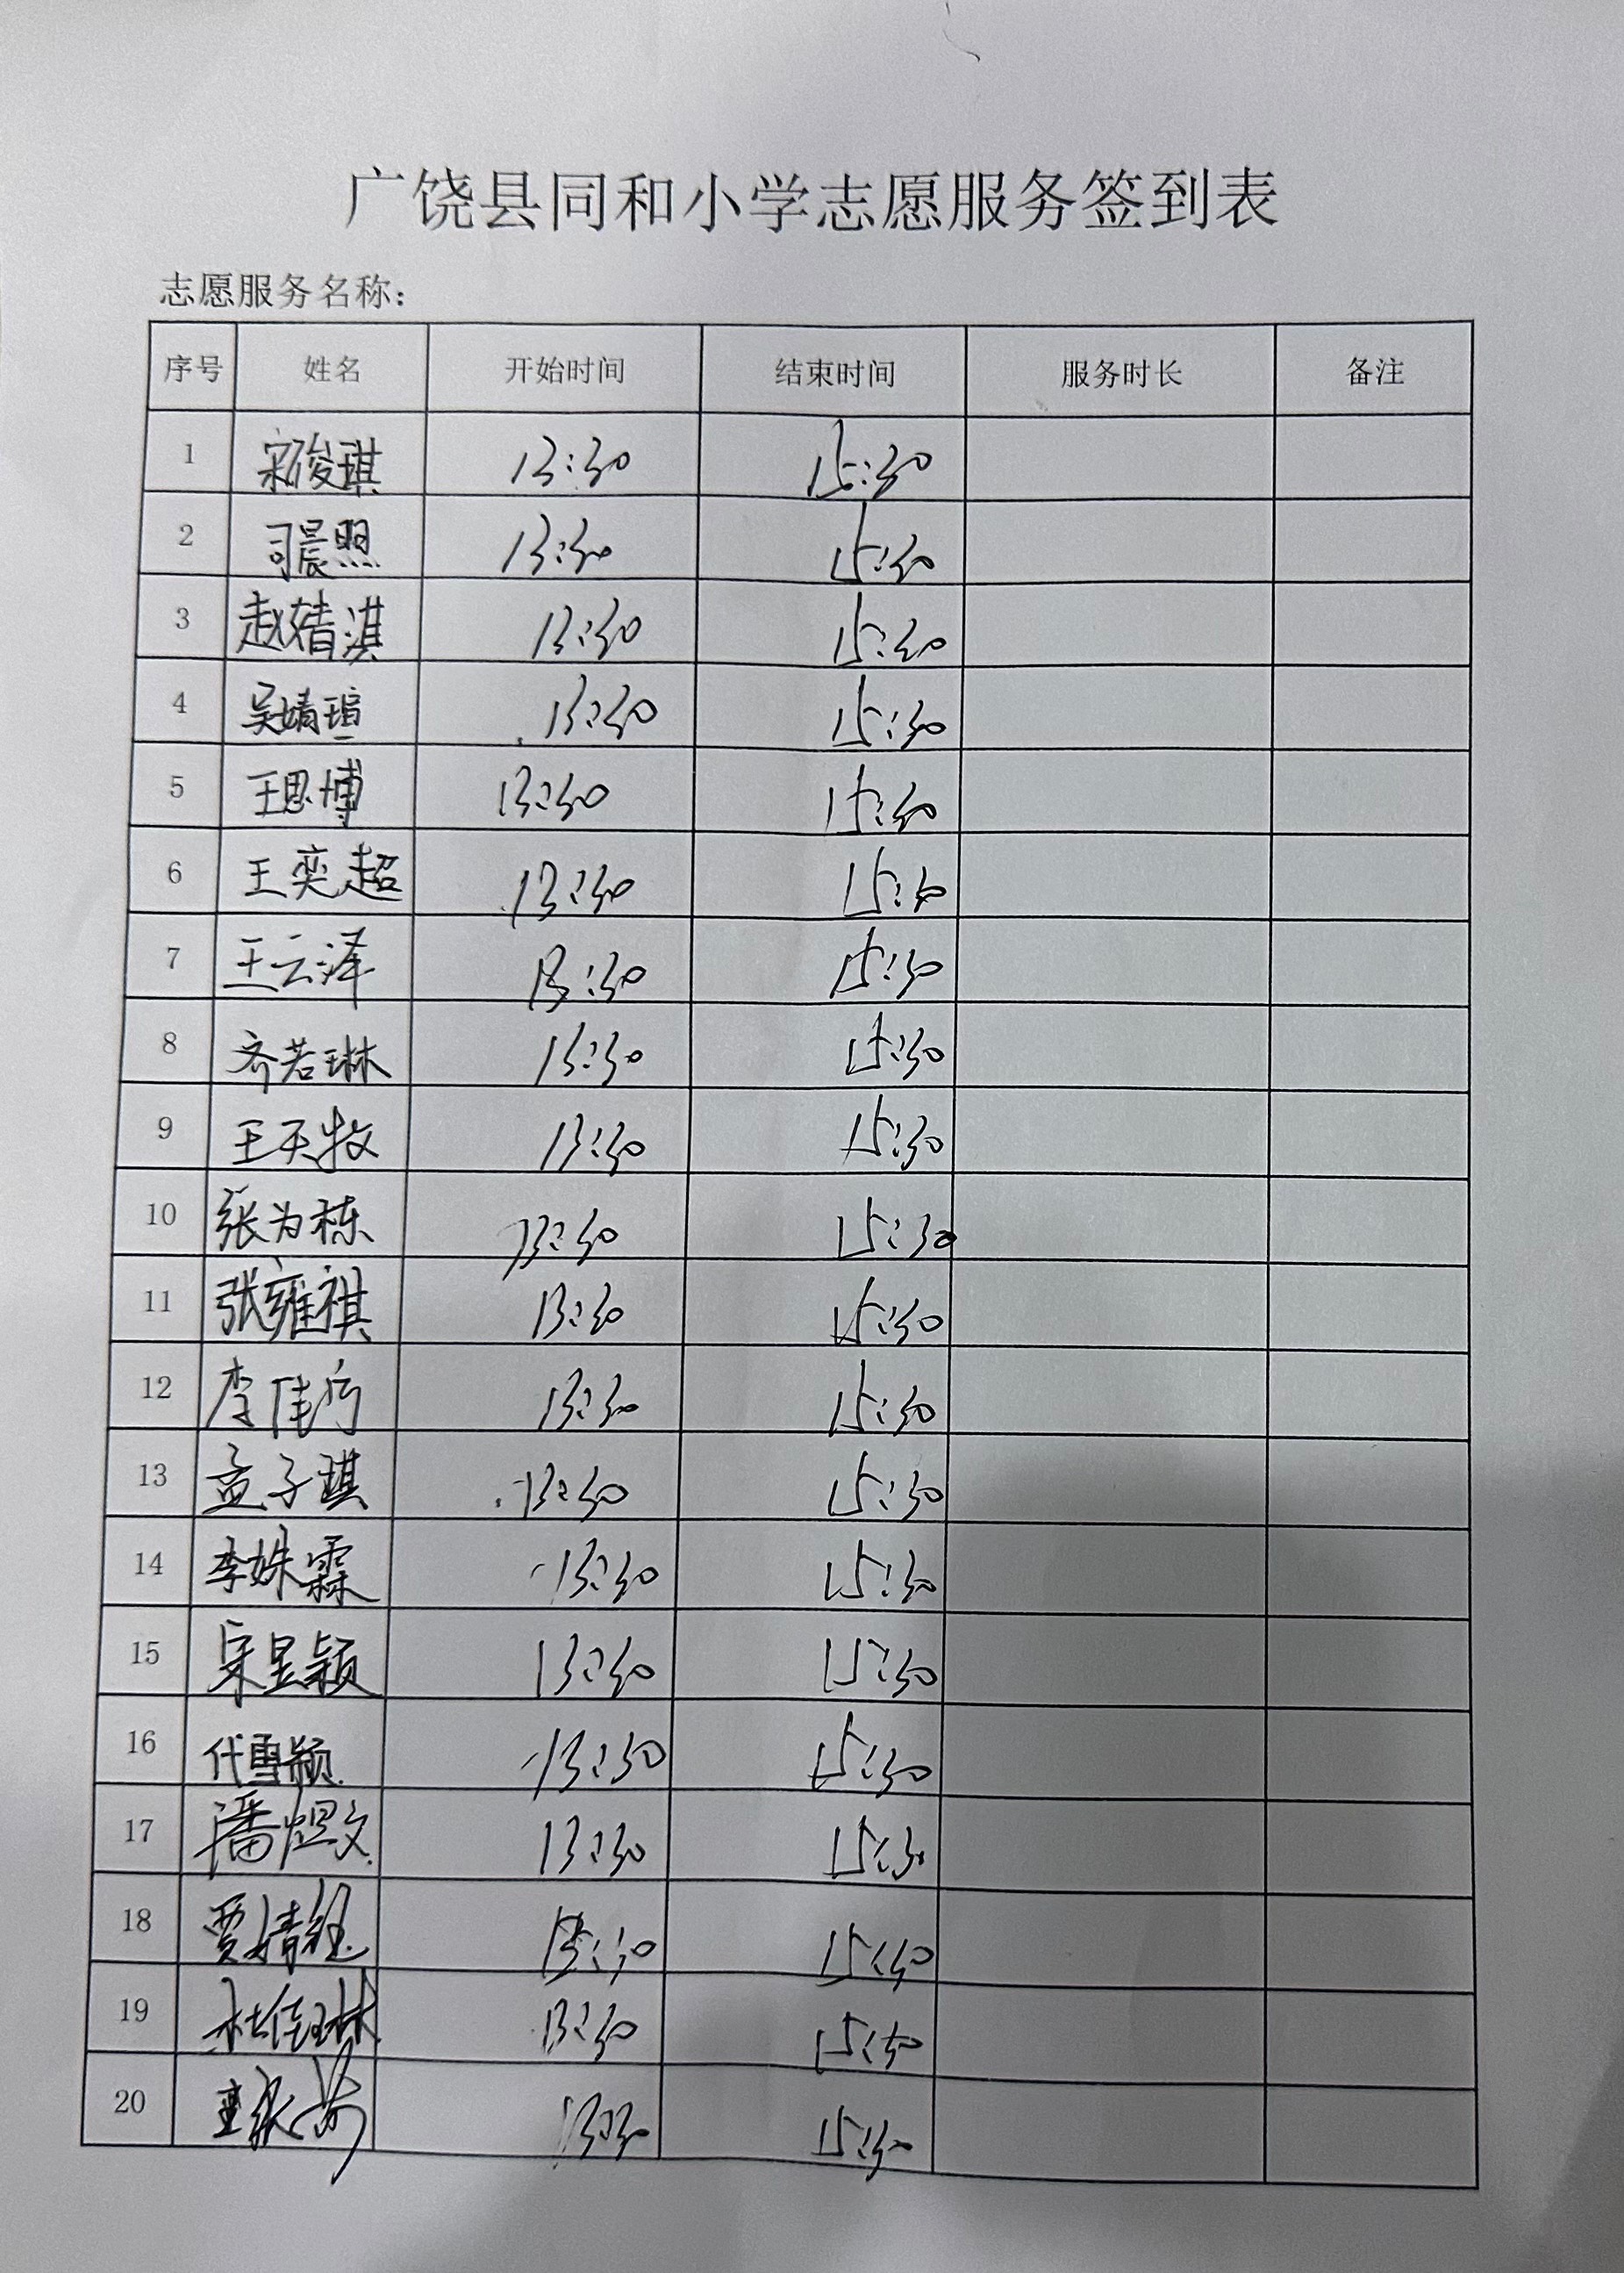 广饶县同和小学志愿服务签到表
志愿服务名称：
序号 姓名 开始时间 结束时间 服务时长 备注
1 宋俊琪 13:30 15:30
2 司晨照 13:30 15:30
3 赵婧淇 13:30 15:30
4 吴婧瑄 13:30 15:30
5 王思博 13:30 15:30
6 王奕超 13:30 15:30
7 王云泽 13:30 15:30
8 齐若琳 13:30 15:30
9 王天牧 13:30 15:30
10 张为栋 13:30 15:30
11 张雍祺 13:30 15:30
12 李佳 13:30 15:30
13 孟子琪 13:30 15:30
14 李姝霖 13:30 15:30
15 宋昱颖 13:30 15:30
16 代雪颖 13:30 15:30
17 潘煜文 13:30 15:30
18 贾婧 13:30 15:30
19 杜佳琳 13:30 15:30
20 13:30 15:30